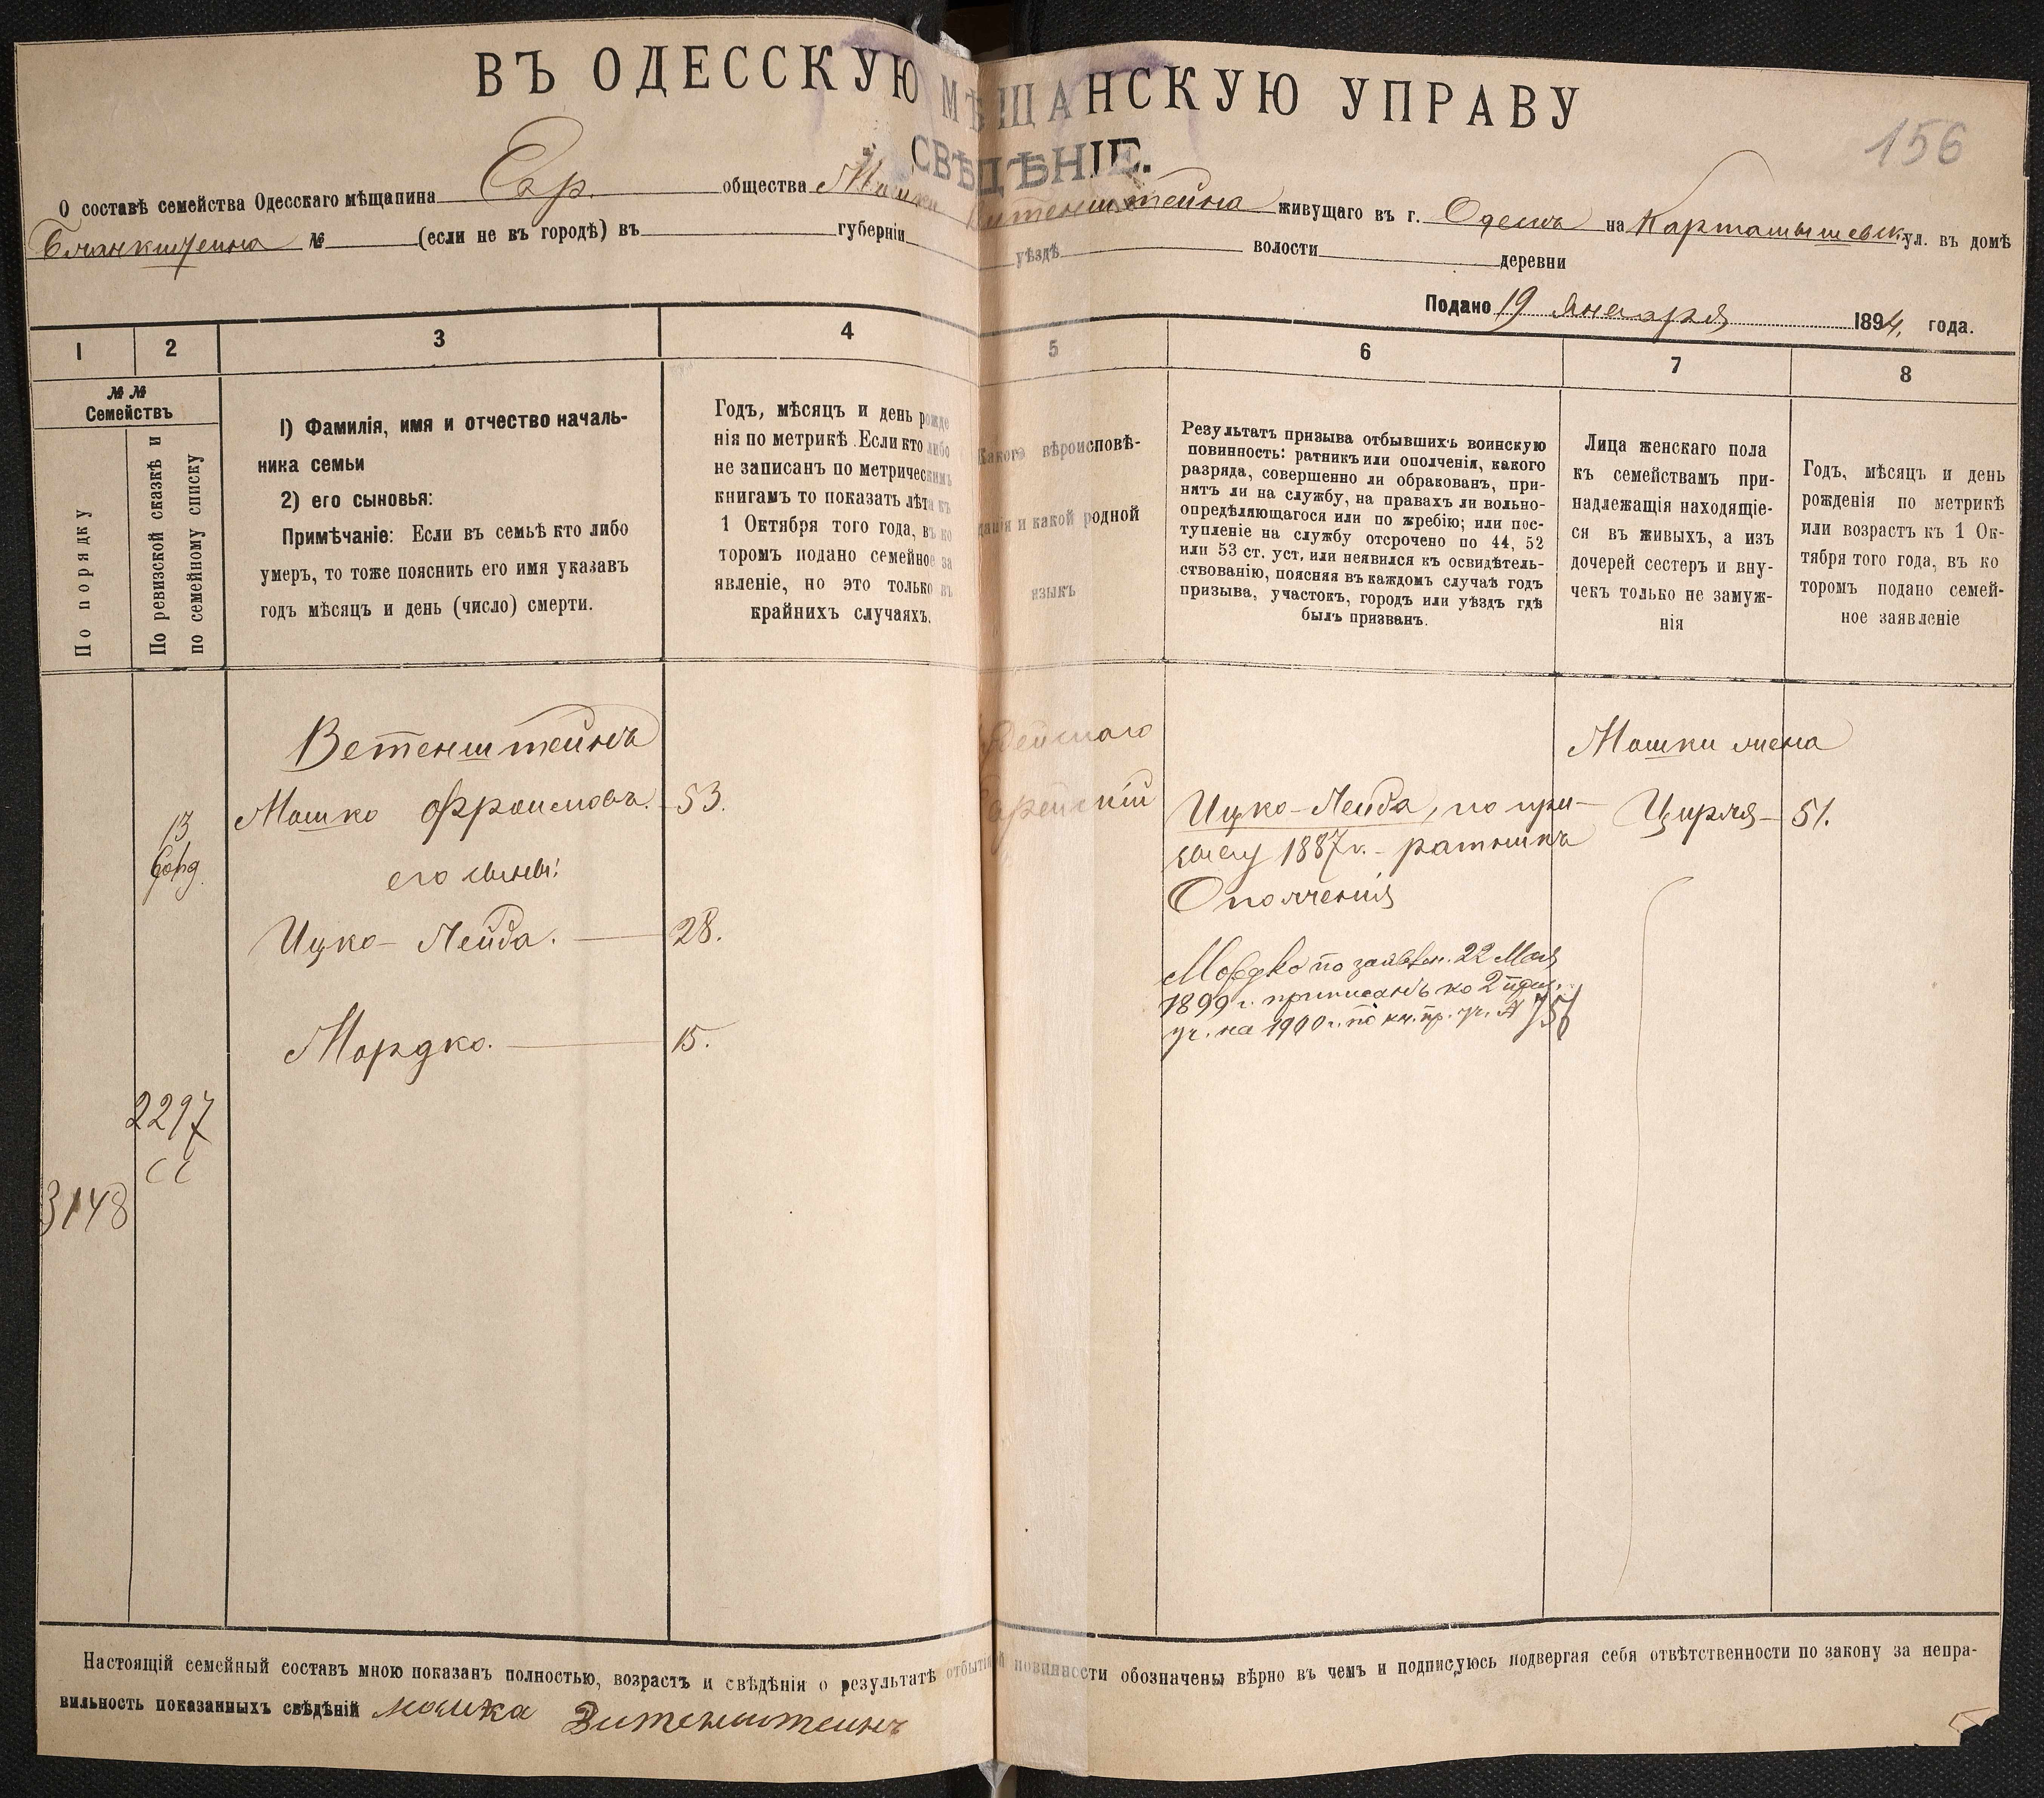 ВЪ ОДЕССКУЮ МѢЩАНСКУЮ УПРАВУ
СВѢДѢНІЕ.
156
О составѣ семейства Одесскаго мѣщанина Евр. общества Мошки Витенштейна живущаго въ г. Одессѣ на Картамышевск. ул. въ домѣ
Бланкштейна № (если не въ городѣ) въ губерніи уѣздѣ волости деревни
Подано 19 Января 1894 года.
1 2 3 4 5 6 7 8
№ №
Семействъ
По порядку
По ревизской сказкѣ и
по семейному списку
1) Фамилія, имя и отчество началь-
ника семьи
2) его сыновья:
Примѣчаніе: Если въ семьѣ кто либо
умеръ, то тоже пояснить его имя указавъ
годъ мѣсяцъ и день (число) смерти.
Годъ, мѣсяцъ и день рожде
нія по метрикѣ. Если кто либо
не записанъ по метрическимъ
книгамъ то показать лѣта къ
1 Октября того года, въ ко
торомъ подано семейное за
явленіе, но это только въ
крайнихъ случаяхъ.
Какого вѣроисповѣ-
данія и какой родной
языкъ
Результатъ призыва отбывшихъ воинскую
повинность: ратникъ или ополченія, какого
разряда, совершенно ли обракованъ, при-
нятъ ли на службу, на правахъ ли вольно-
опредѣляющагося или по жребію; или пос-
тупленіе на службу отсрочено по 44, 52
или 53 ст. уст. или неявился къ освидѣтель-
ствованію, поясняя въ каждомъ случаѣ годъ
призыва, участокъ, городъ или уѣздъ гдѣ
былъ призванъ.
Лица женскаго пола
къ семействамъ при-
надлежащія находящіе-
ся въ живыхъ, а изъ
дочерей сестеръ и вну-
чекъ только не замуж-
нія
Годъ, мѣсяцъ и день
рожденія по метрикѣ
или возрастъ къ 1 Ок-
тября того года, въ ко
торомъ подано семей-
ное заявленіе
Ветенштейнъ
Мошко Фроимовъ. 53.
13
его сыновья:
Ицко-Лейба. 28.
Мордко. 15.
2297
СС
3148
Еврейскій
Ицко-Лейба, по при-
зыву 1887 г. - ратникъ
Ополченія
Мордко по заявлен. 22 Мая
1899 г. приписанъ ко 2 приз.
уч. на 1900 г. по кн. пр. уч. А 757
Мошки жена
Цирля - 51.
Настоящій семейный составъ мною показанъ полностью, возрастъ и свѣдѣнія о результатѣ отбытой повинности обозначены вѣрно въ чемъ и подписуюсь подвергая себя отвѣтственности по закону за непра-
вильность показанныхъ свѣдѣній мошка Витенштеинъ